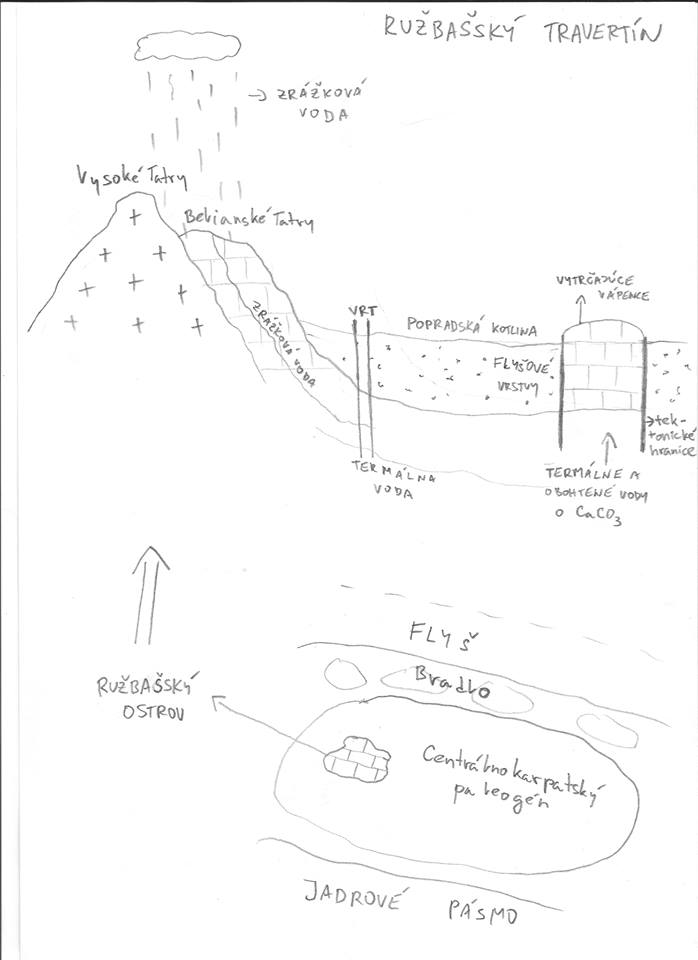 RUŽBAŠSKÝ TRAVERTÍN
→ ZRÁŽKOVÁ
VODA
Vysoké Tatry
Belianské Tatry
ZRÁŽKOVÁ VODA
VRT
POPRADSKÁ KOTLINA
VYTRČAJÚCE
VÁPENCE
FLYŠOVÉ
VRSTVY
→tek-
tonické
hranice
TERMÁLNA
VODA
TERMÁLNE A
OBOHTENÉ VODY
O CaCO3
FLYŠ
Bradlo
RUŽBAŠSKÝ
OSTROV
Centrálnokarpatský
paleogén
JADROVÉ PÁSMO